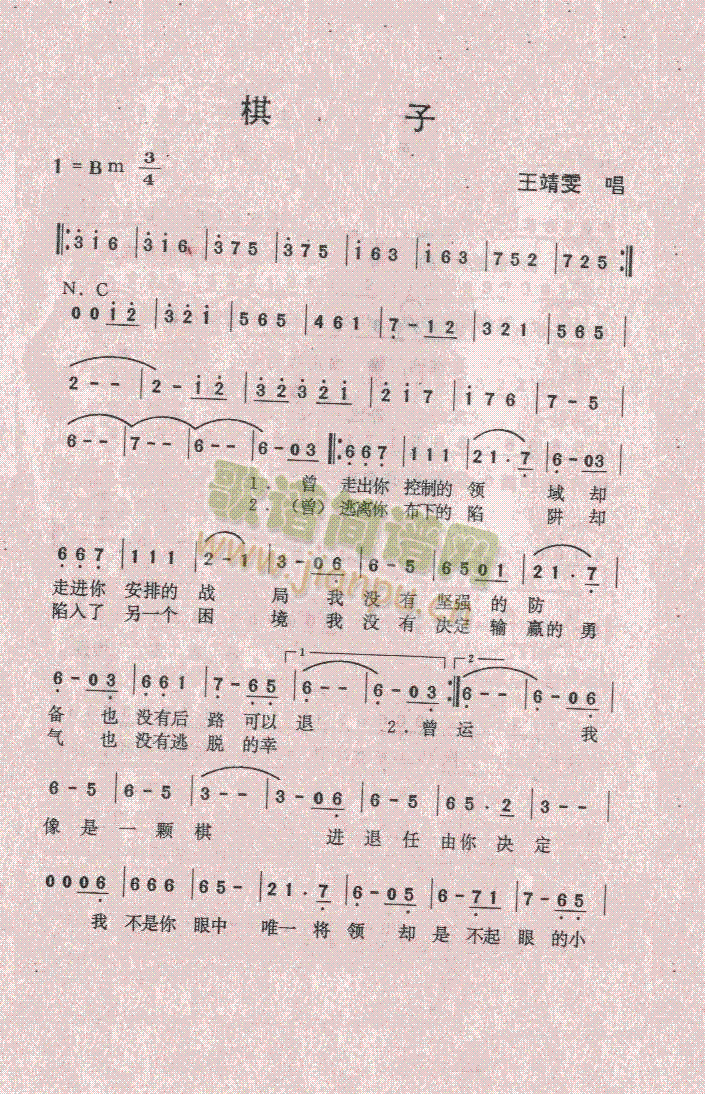 棋 子
1 = Bm 3/4
王靖雯 唱
‖: 3 1 6 | 3 1 6 | 3 7 5 | 3 7 5 | 1 6 3 | 1 6 3 | 7 5 2 | 7 2 5 :‖
N. C
0 0 1 2 | 3 2 1 | 5 6 5 | 4 6 1 | 7 - 1 2 | 3 2 1 | 5 6 5 |
2 - - | 2 - 1 2 | 3 2 3 2 1 | 2 1 7 | 1 7 6 | 7 - 5 |
6 - - | 7 - - | 6 - - | 6 - 0 3 ‖: 6 6 7 | 1 1 1 | 2 1 . 7 | 6 - 0 3 |
1. 曾 走出你 控制的 领 域 却
2.（曾）逃离你 布下的 陷 阱 却
歌谱简谱网
www.jianpu.cn
6 6 7 | 1 1 1 | 2 - 1 | 3 - 0 6 | 6 - 5 | 6 5 0 1 | 2 1 . 7 |
走进你 安排的 战 局 我 没 有 坚强 的 防
陷入了 另一个 困 境 我 没 有 决定 输 赢的 勇
1 2
6 - 0 3 | 6 6 1 | 7 - 6 5 | 6 - - | 6 - 0 3 :‖ 6 - - | 6 - 0 6 |
备 也 没有后 路 可以 退 2. 曾 运 我
气 也 没有逃 脱 的幸
6 - 5 | 6 - 5 | 3 - - | 3 - 0 6 | 6 - 5 | 6 5 . 2 | 3 - - |
像 是 一 颗 棋 进 退 任 由你 决 定
0 0 0 6 | 6 6 6 | 6 5 - | 2 1 . 7 | 6 - 0 5 | 6 - 7 1 | 7 - 6 5 |
我 不是你 眼中 唯一 将 领 却 是 不起 眼 的小